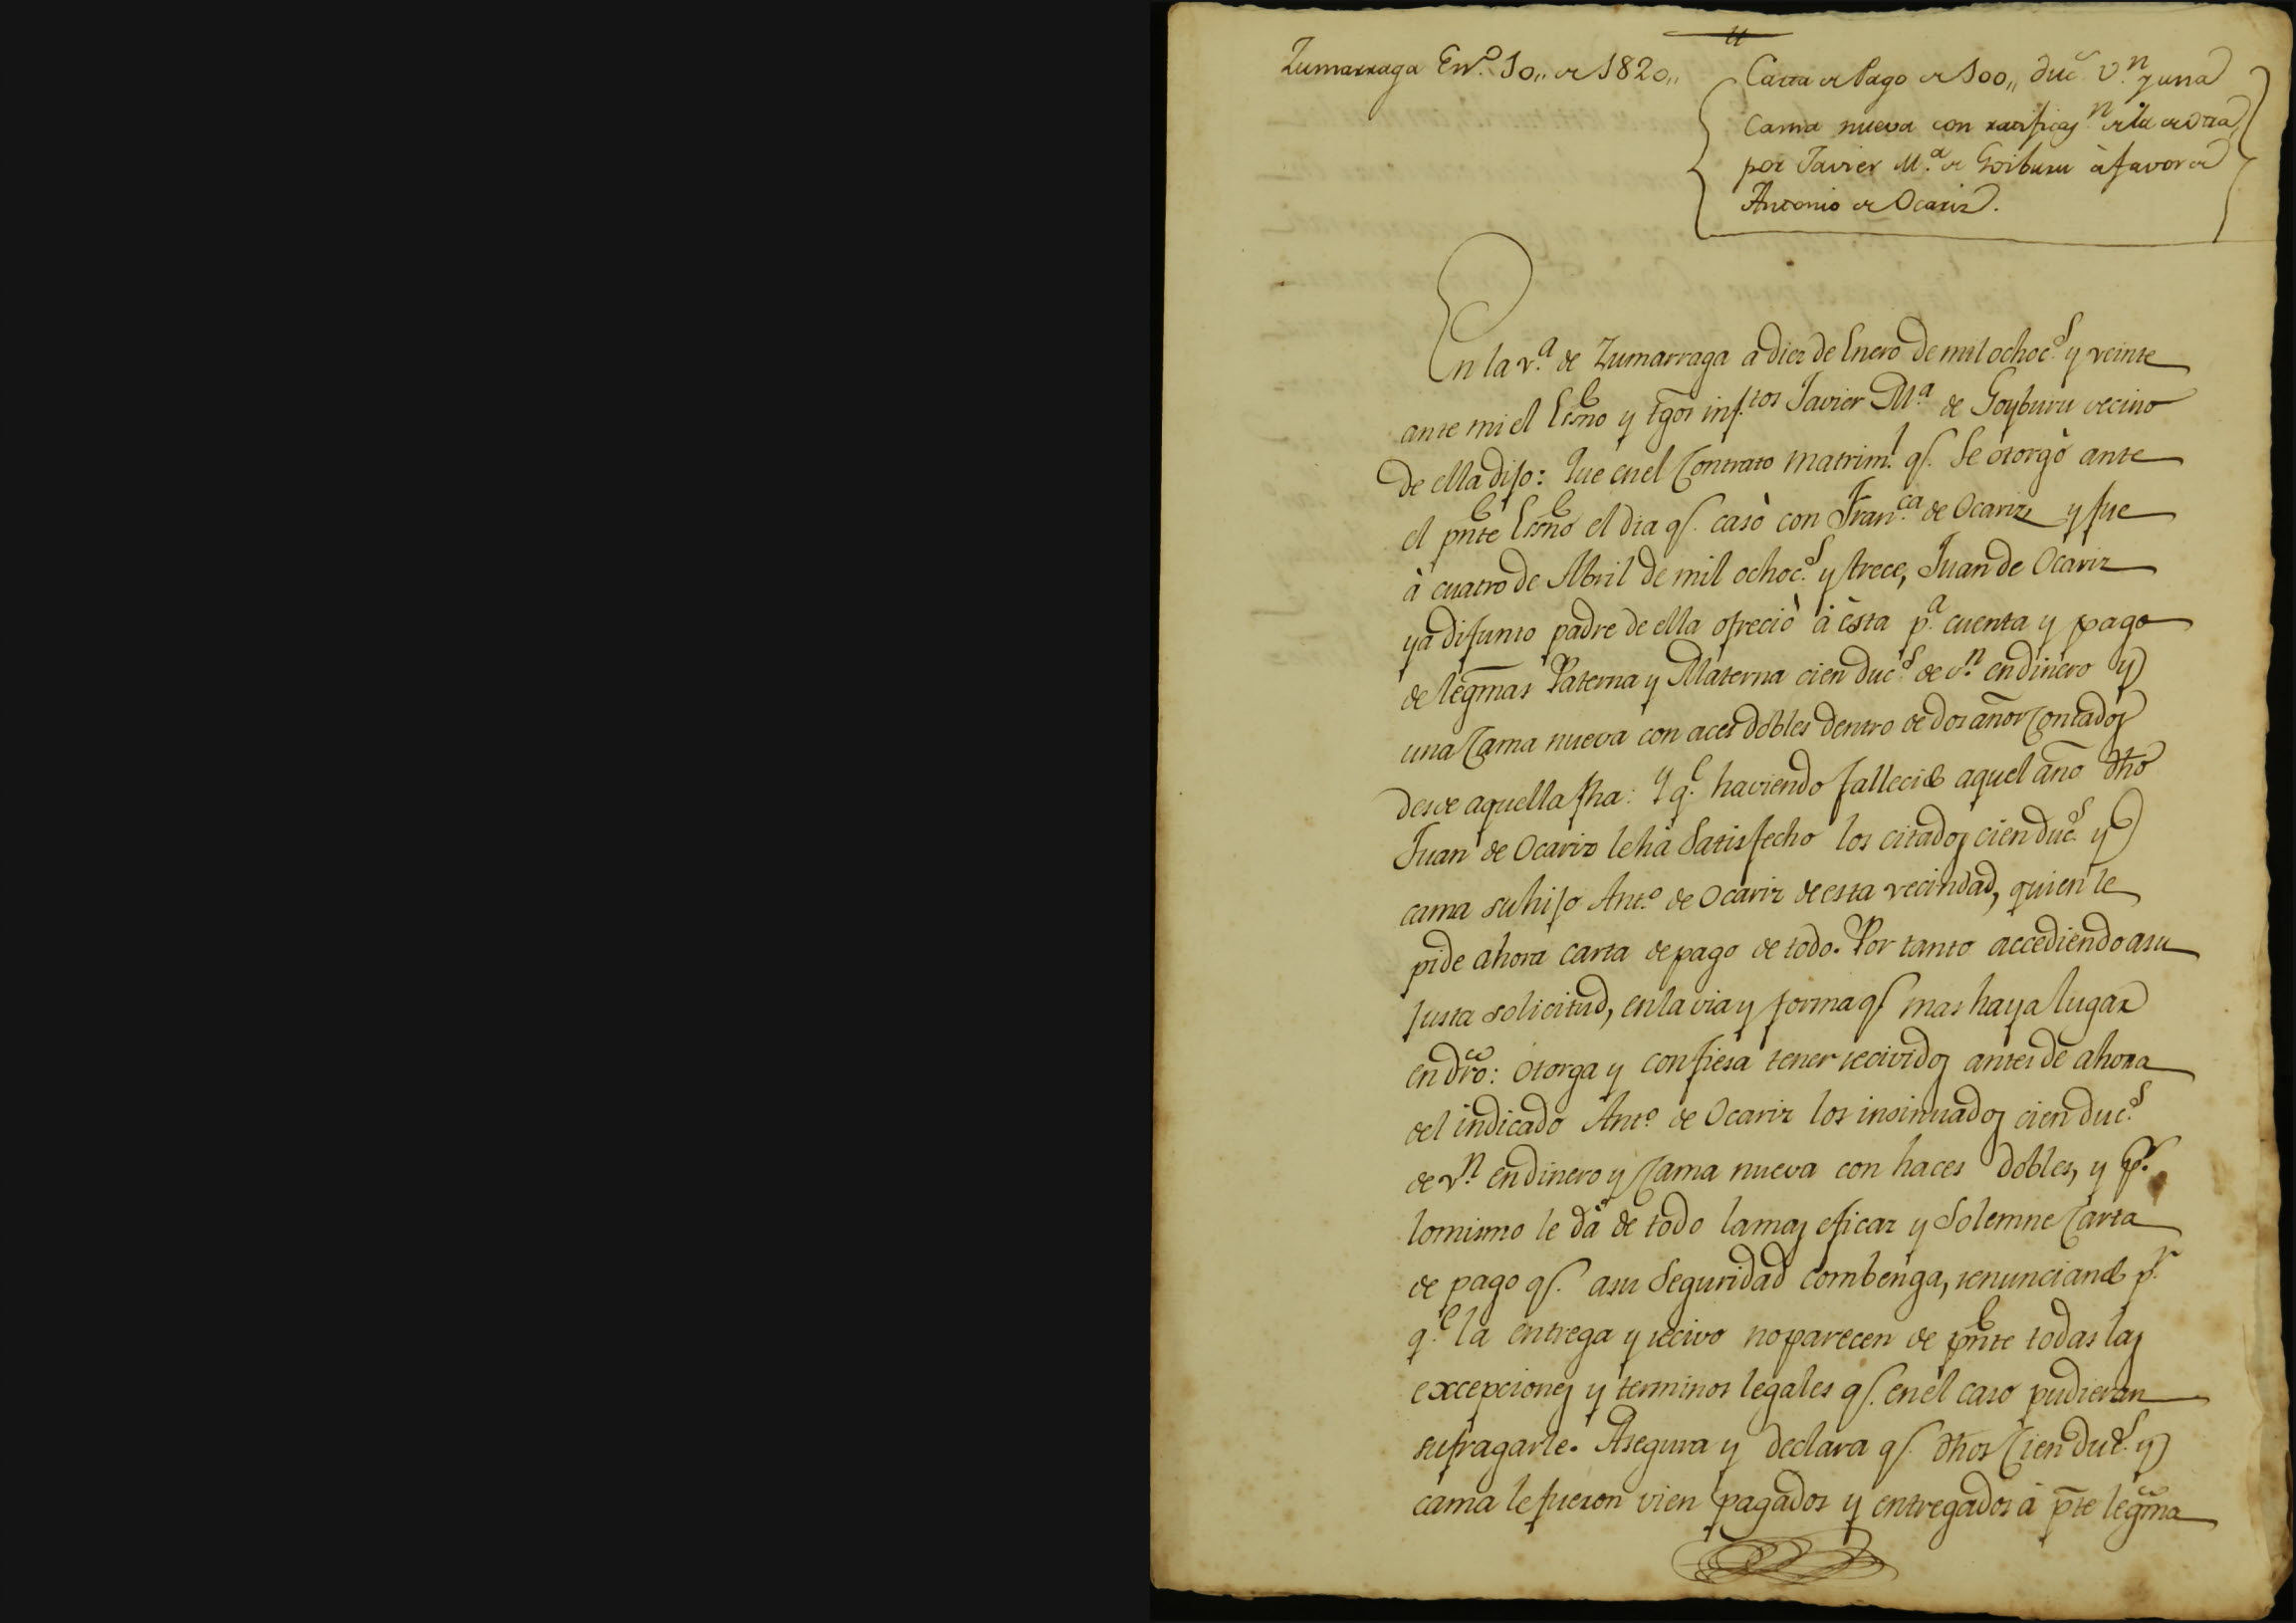 11
Zumarraga En.º 10,, de 1820,,
Carta de Pago de 100,, duc.s v.n y una
Cama nueva con ratificaj.n de la de otra,
por Javier M.ª de Goiburu à favor de
Antonio de Ocariz.
En la v.ª de Zumarraga a diez de Enero de mil ochoc.s y veinte
ante mi el Esño y tgos inf.tos Javier M.ª de Goyburu vecino
de ella dijo: Que en el Contrato matrim.l q.e Se otorgò ante
el pnte Esño el dia q.e casò con Fran.ca de Ocariz, y fue
à cuatro de Abril de mil ochoc.s y trece, Juan de Ocariz
ya difunto padre de ella ofreciò à èsta p.a cuenta y pago
de legmas Paterna y Materna cien duc.s de v.n en dinero y
una Cama nueva con aces dobles dentro de dos años Contados
desde aquella fha: Y q.e haviendo fallecido aquel año dho
Juan de Ocariz le hà Satisfecho los citados cien duc.s y
cama su hijo Ant.º de Ocariz de esta vecindad, quien le
pide ahora carta de pago de todo. Por tanto accediendo a su
justa solicitud, en la via y forma q.e mas haya lugar
en dro: otorga y confiesa tener recividos antes de ahora
del indicado Ant.º de Ocariz los insinuados cien duc.s
de v.n en dinero y Cama nueva con haces dobles, y p.r
lo mismo le dà de todo la mas eficaz y Solemne Carta
de pago q.e a su Seguridad combenga, renunciando p.r
q.e la entrega y recivo no parecen de pnte todas las
excepciones y terminos legales q.e en el caso pudieran
sufragarle. Asegura y declara q.e dhos Cien duc.s y
cama le fueron vien pagados y entregados à pte legma